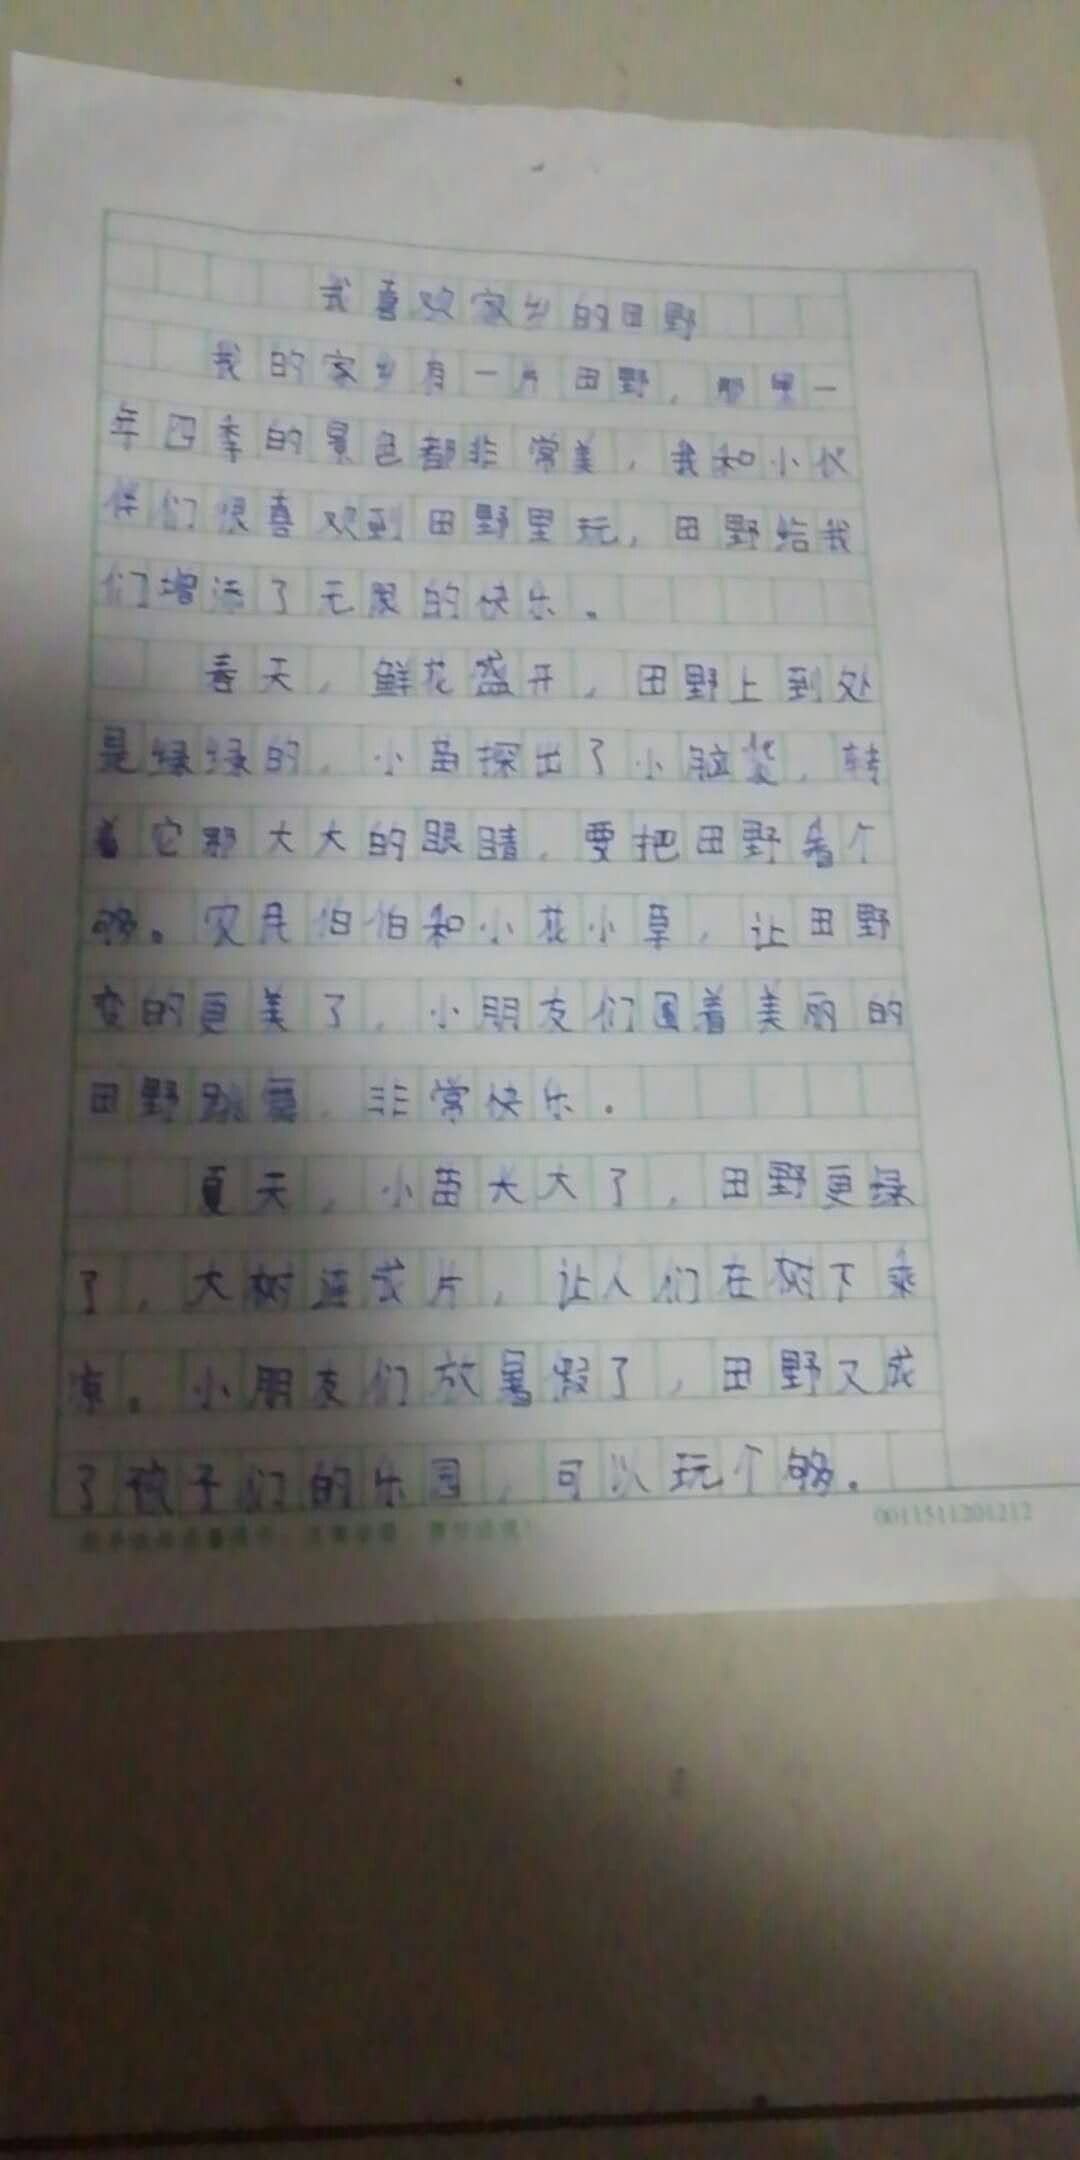 我喜欢家乡的田野
我的家乡有一片田野，那里一
年四季的景色都非常美，我和小伙
伴们很喜欢到田野里玩，田野给我
们增添了无限的快乐。
春天，鲜花盛开，田野上到处
是绿绿的，小苗探出了小脑袋，转
着它那大大的眼睛，要把田野看个
够。农民伯伯和小花小草，让田野
变的更美了，小朋友们围着美丽的
田野跳舞，非常快乐。
夏天，小苗长大了，田野更绿
了，大树连成片，让人们在树下乘
凉。小朋友们放暑假了，田野又成
了孩子们的乐园，可以玩个够。
0011511201212